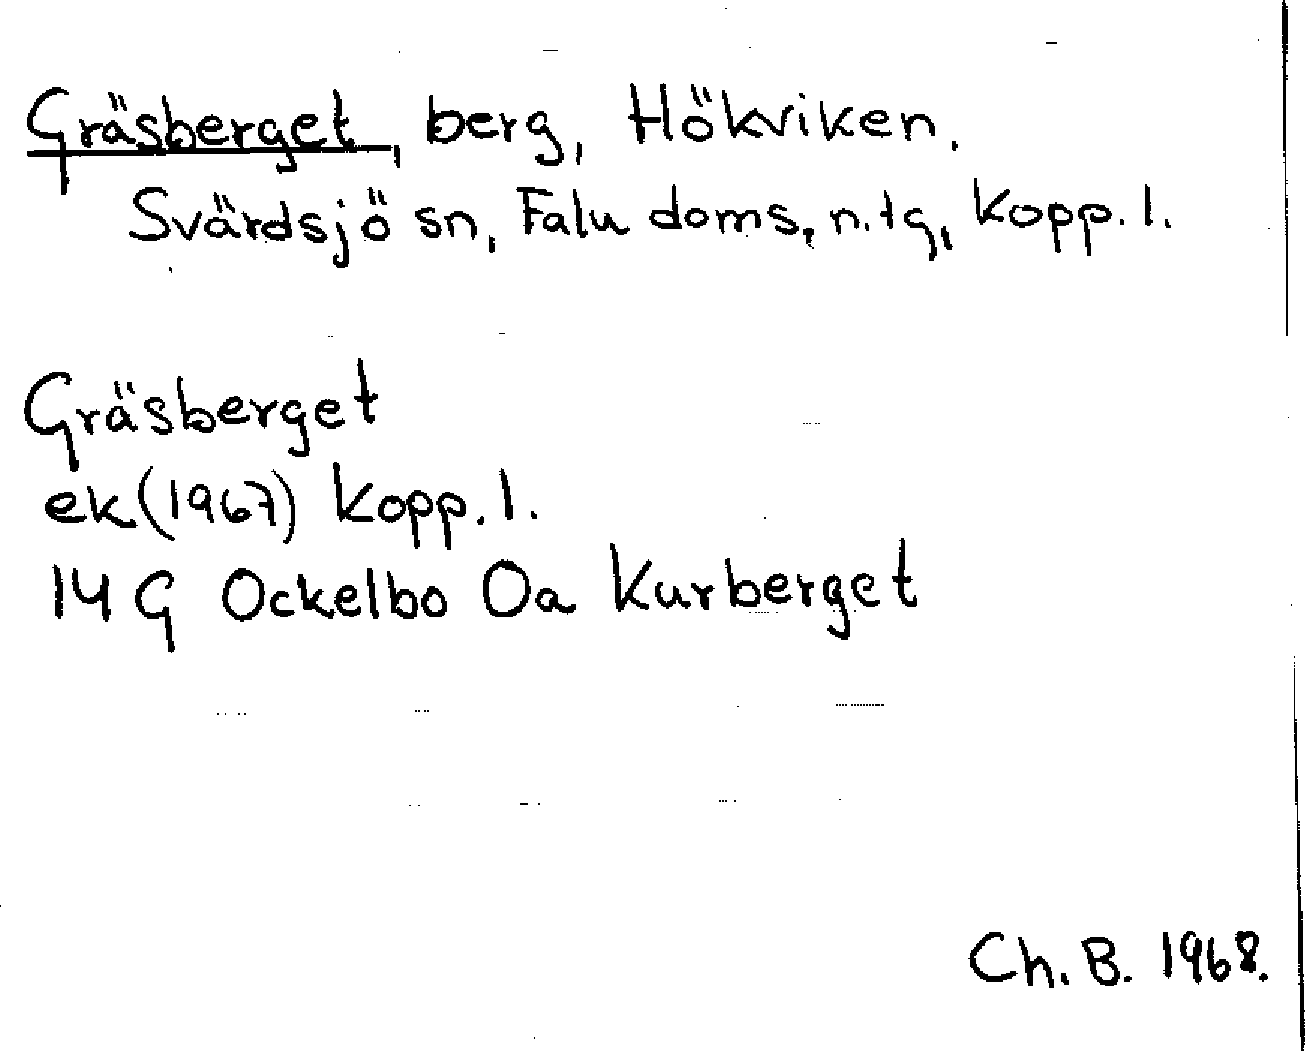 Gräsberget, berg, Hökviken.
Svärdsjö sn, Falu doms, n. tg, Kopp. l.
Gräsberget
ek (1967) Kopp. l.
14 G Ockelbo Oa Kurberget
Ch. B. 1968.